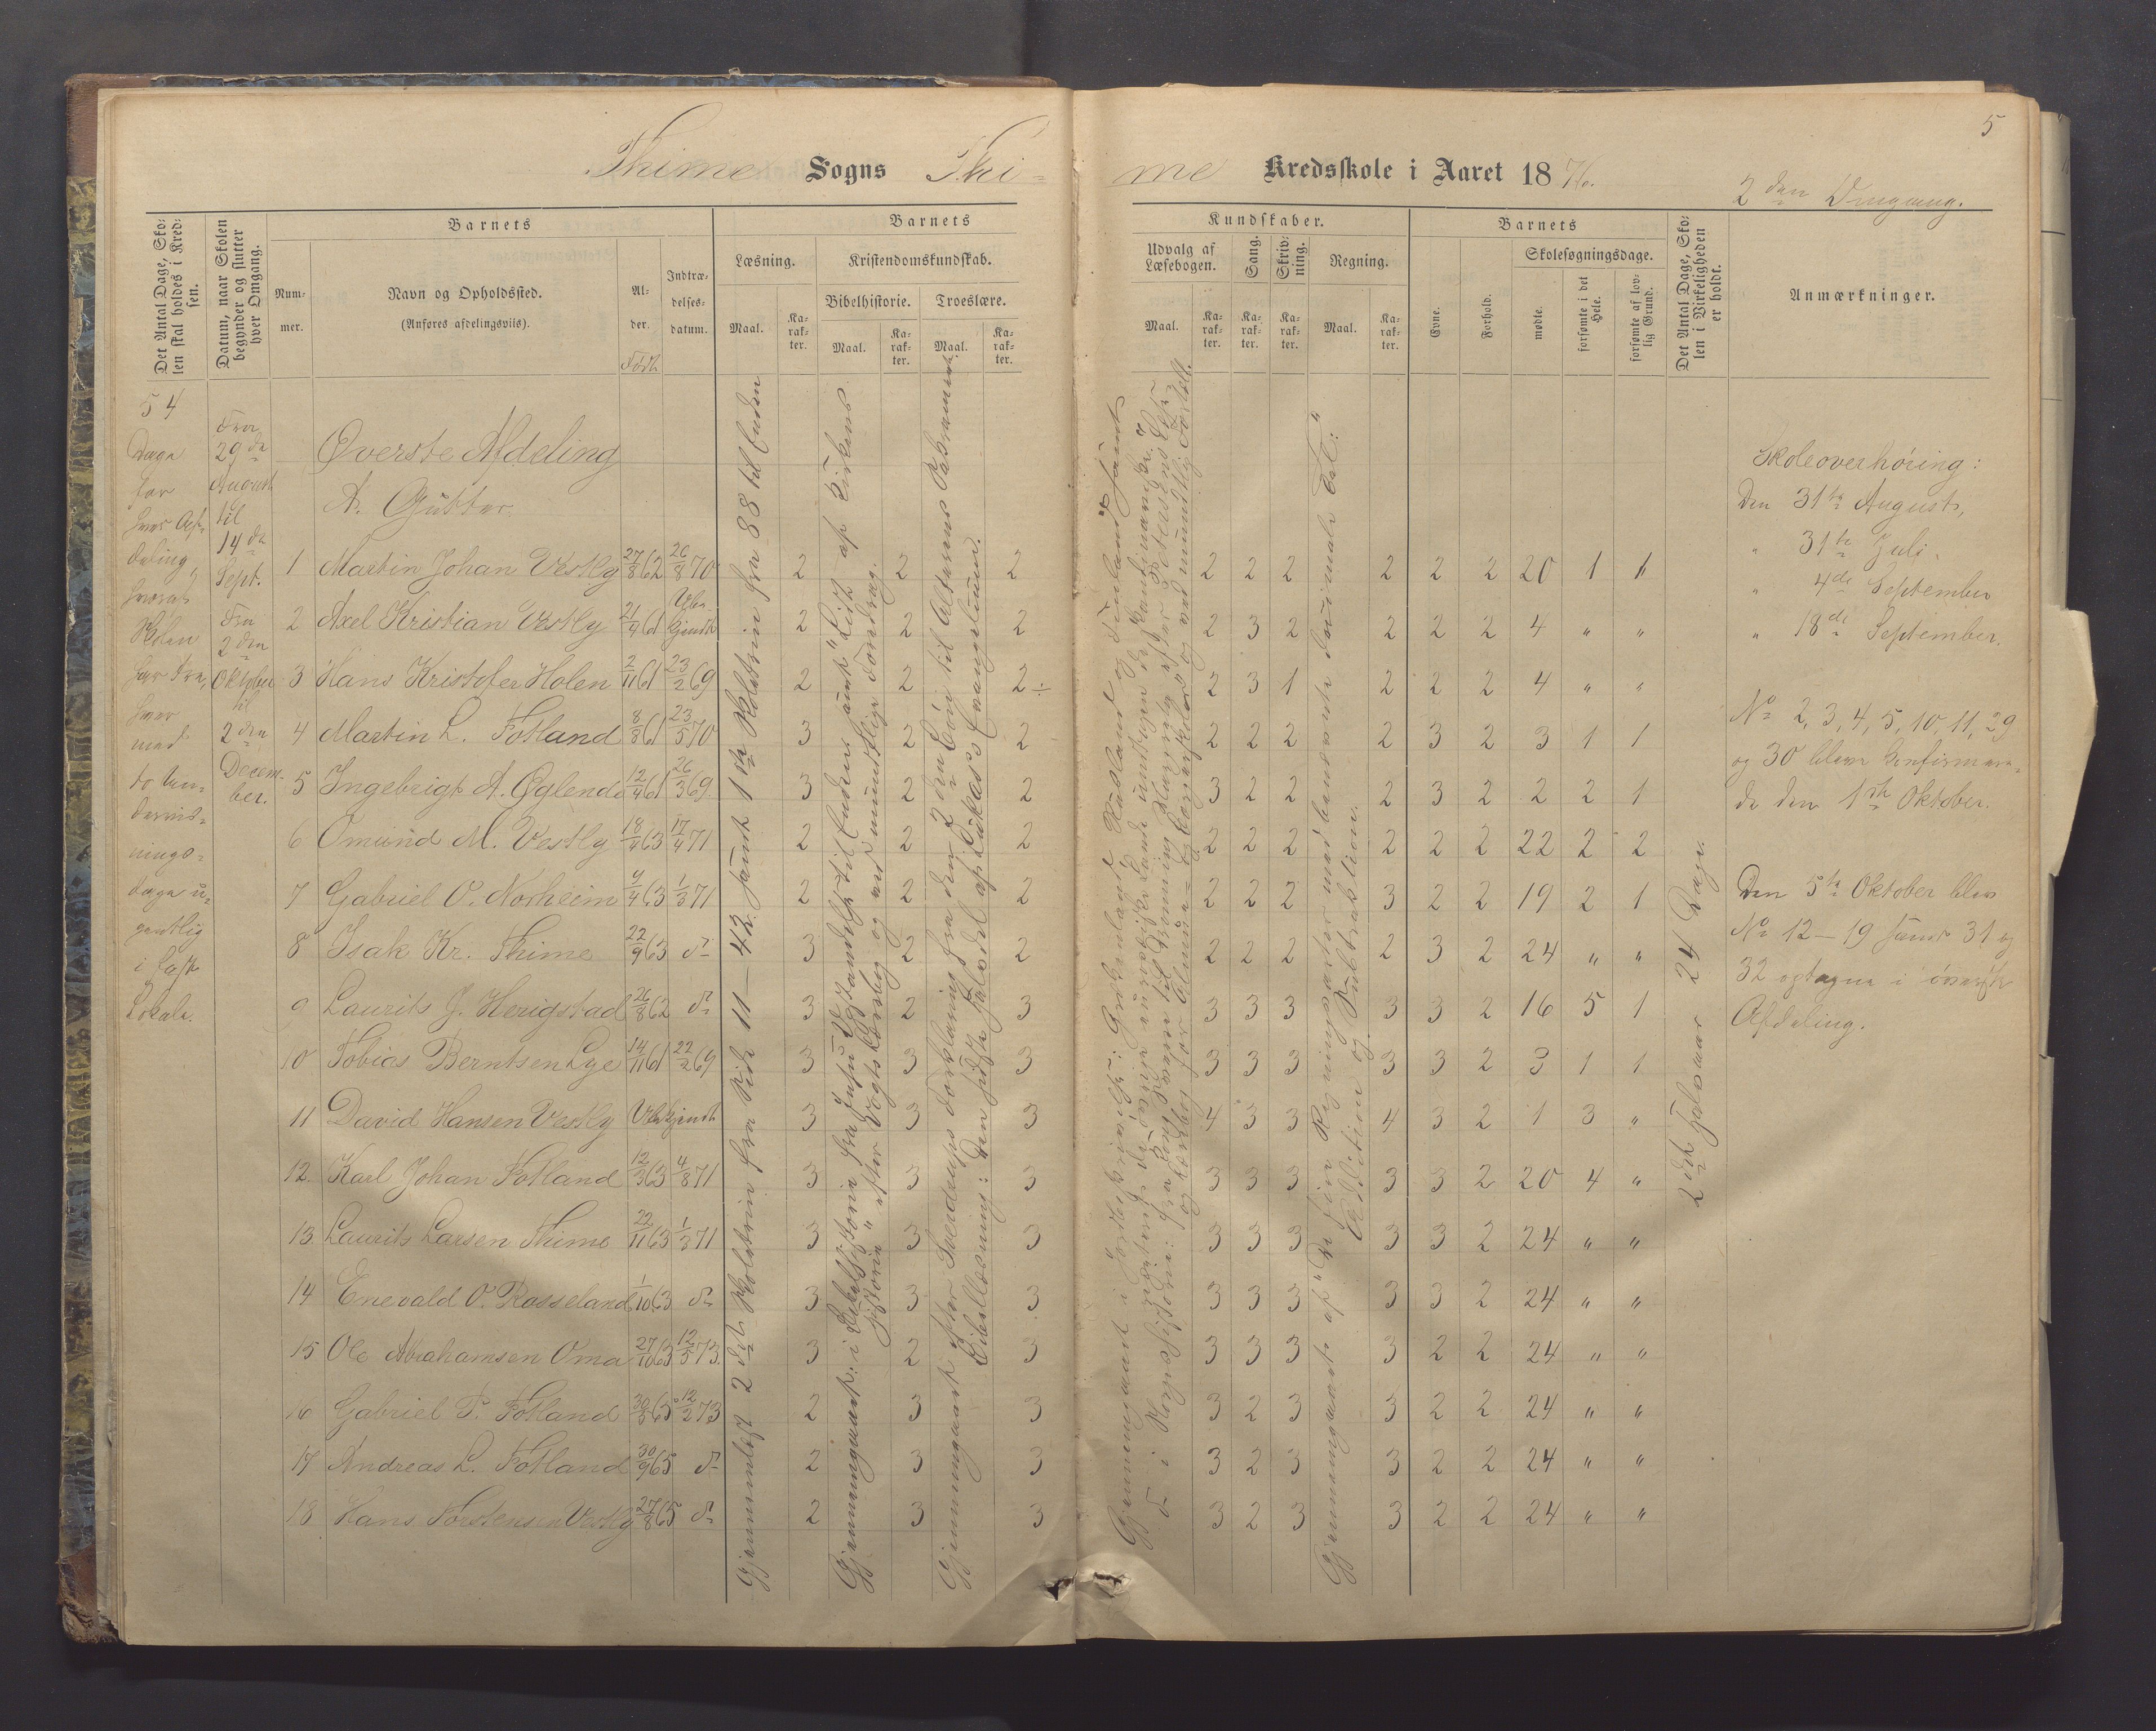 5
Thime Sogns Thi-
me Kredsskole i Aaret 1876.
2den Omgang.
Det Antal Dage, Sko-
len skal holdes i Kred-
sen.
Datum, naar Skolen
begynder og slutter
hver Omgang.
Barnets
Num-
mer.
Navn og Opholdssted.
(Anføres afdelingsviis).
Al-
der.
Født
Indtræ-
delses-
datum.
Barnets
Læsning.
Maal.
Ka-
rak-
ter.
Kristendomskundskab.
Bibelhistorie.
Maal.
Ka-
rak-
ter.
Troeslære.
Maal.
Ka-
rak-
ter.
Kundskaber.
Udvalg af
Læsebogen.
Maal.
Ka-
rak-
ter.
Sang.
Ka-
rak-
ter.
Skriv-
ning.
Ka-
rak-
ter.
Regning.
Maal.
Ka-
rak-
ter.
Barnets
Evne.
Forhold.
Skolesøgningsdage.
mødte.
forsømte i det
Hele.
forsømte af lov-
lig Grund.
Det Antal Dage, Sko-
len i Virkeligheden
er holdt.
Anmærkninger.
54
Dage
for
hver Af-
deling,
hvorat
Skolen
med
to Un-
dervis-
nings-
dage u-
gentlig
i fast
Lokale.
Fra
29de
August
til
14de
Sept.
Fra
2den
Oktober
til
2den
Decem-
ber.
Øverste Afdeling
A. Gutter.
1 Martin Johan Vestly 27/8 62 26/8 70 2 2 2 2 2 2 2 2 2 20 1 1
2 Axel Kristian Vestly 21/4 61 Ube-kjendt 2 2 2 2 3 2 2 2 2 4 " "
3 Hans Kristofer Holen 2/11 61 23/2 69 2 2 2÷ 2 3 1 2 2 2 4 " "
4 Martin L. Fotland 8/8 61 23/5 70 3 2 2 2 2 2 2 3 2 3 1 1
5 Ingebrigt A. Øglend 12/4 61 26/3 69 3 2 2 3 2 2 2 3 2 2 2 1
6 Omund M. Vestly 18/4 63 17/4 71 2 2 2 2 2 2 2 2 2 22 2 2
7 Gabriel O. Norheim 9/4 63 1/3 71 2 2 2 2 2 2 3 2 2 19 2 1
8 Isak Kr. Thime 22/9 63 do 3 2 2 2 2 2 2 3 2 24 " "
9 Laurits J. Herigstad 26/8 62 do 3 2 3 3 3 3 3 3 2 16 5 1
10 Tobias Berntsen Lye 14/11 61 22/2 69 3 3 3 3 3 3 3 3 2 3 1 1
11 David Hansen Vestly Ubekjendt 3 3 3 4 3 3 4 3 2 1 3 "
12. Karl Johan Fotland 12/3 63 4/8 71 3 3 3 3 3 3 3 3 2 20 4 "
13. Laurits Larsen Thime 22/11 63 1/3 71 3 3 3 3 3 3 3 3 2 24 " "
14 Enevald O. Rosseland 1/10 63 do 3 3 3 3 3 3 3 3 2 24 " "
15 Ole Abrahamsen Oma 27/10 63 12/5 73. 3 2 3 3 3 3 3 2 2 24 " "
16 Gabriel T. Fotland 30/8 65 12/2 73 2 3 3 3 2 3 3 2 2 24 " "
17 Andreas L. Fotland 30/9 65 do 2 3 3 3 2 3 3 2 2 24 " "
18 Hans Torstensen Vestly 27/8 65 do 2 3 3 3 2 3 3 2 2 24 " "
Gjennemlæst 2det Skoletrin fra Side 11 — 42. samt 1ste Skoletrin fra 88 til Enden
Gjennemgaaet: i Bibelhistorie fra Jesu Opstandelse til Enden samt "Lidt af Kirkens
Historie" efter Vogts Lærebog og ved mundtlige Foredrag.
Gjennemgaaet efter Sverdrups Forklaring fra den 2den Bøn til Alterens Sakrament.
Bibellæsning: Den sidste Halvdel af Lukas's Evangelium.
Gjennemgaaet i Jordbeskrivelse: Grækenland, Rusland og Finland samt
og Lærebog for Almue- og Borgerskoler og ved mundtlig Fortæll.
Gjennemgaaet af "De fire Regningsarter med benævnte decimale Tal:"
Addition og Subtraktion.
2det Halvaar 24 Dage.
Skoleoverhøring:
Den 31te August,
" 31te Juli.
" 4de September
" 18de September.
No 2, 3, 4, 5, 10, 11, 29
og 30 bleve konfirmere-
de den 1ste Oktober.
Den 5te Oktober blev
No 12 — 19 samt 31 og
32 optagne i øverste
Afdeling.